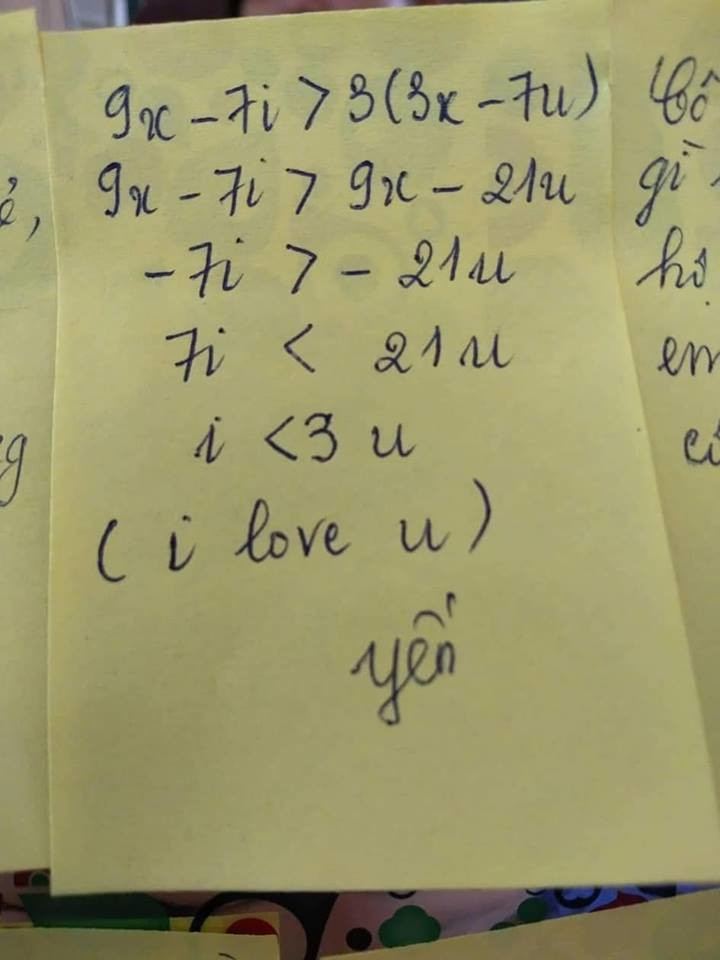 9x - 7i > 3(3x - 7u)
9x - 7i > 9x - 21u
- 7i > - 21u
7i < 21u
i < 3 u
( i love u )
yến
gì
em